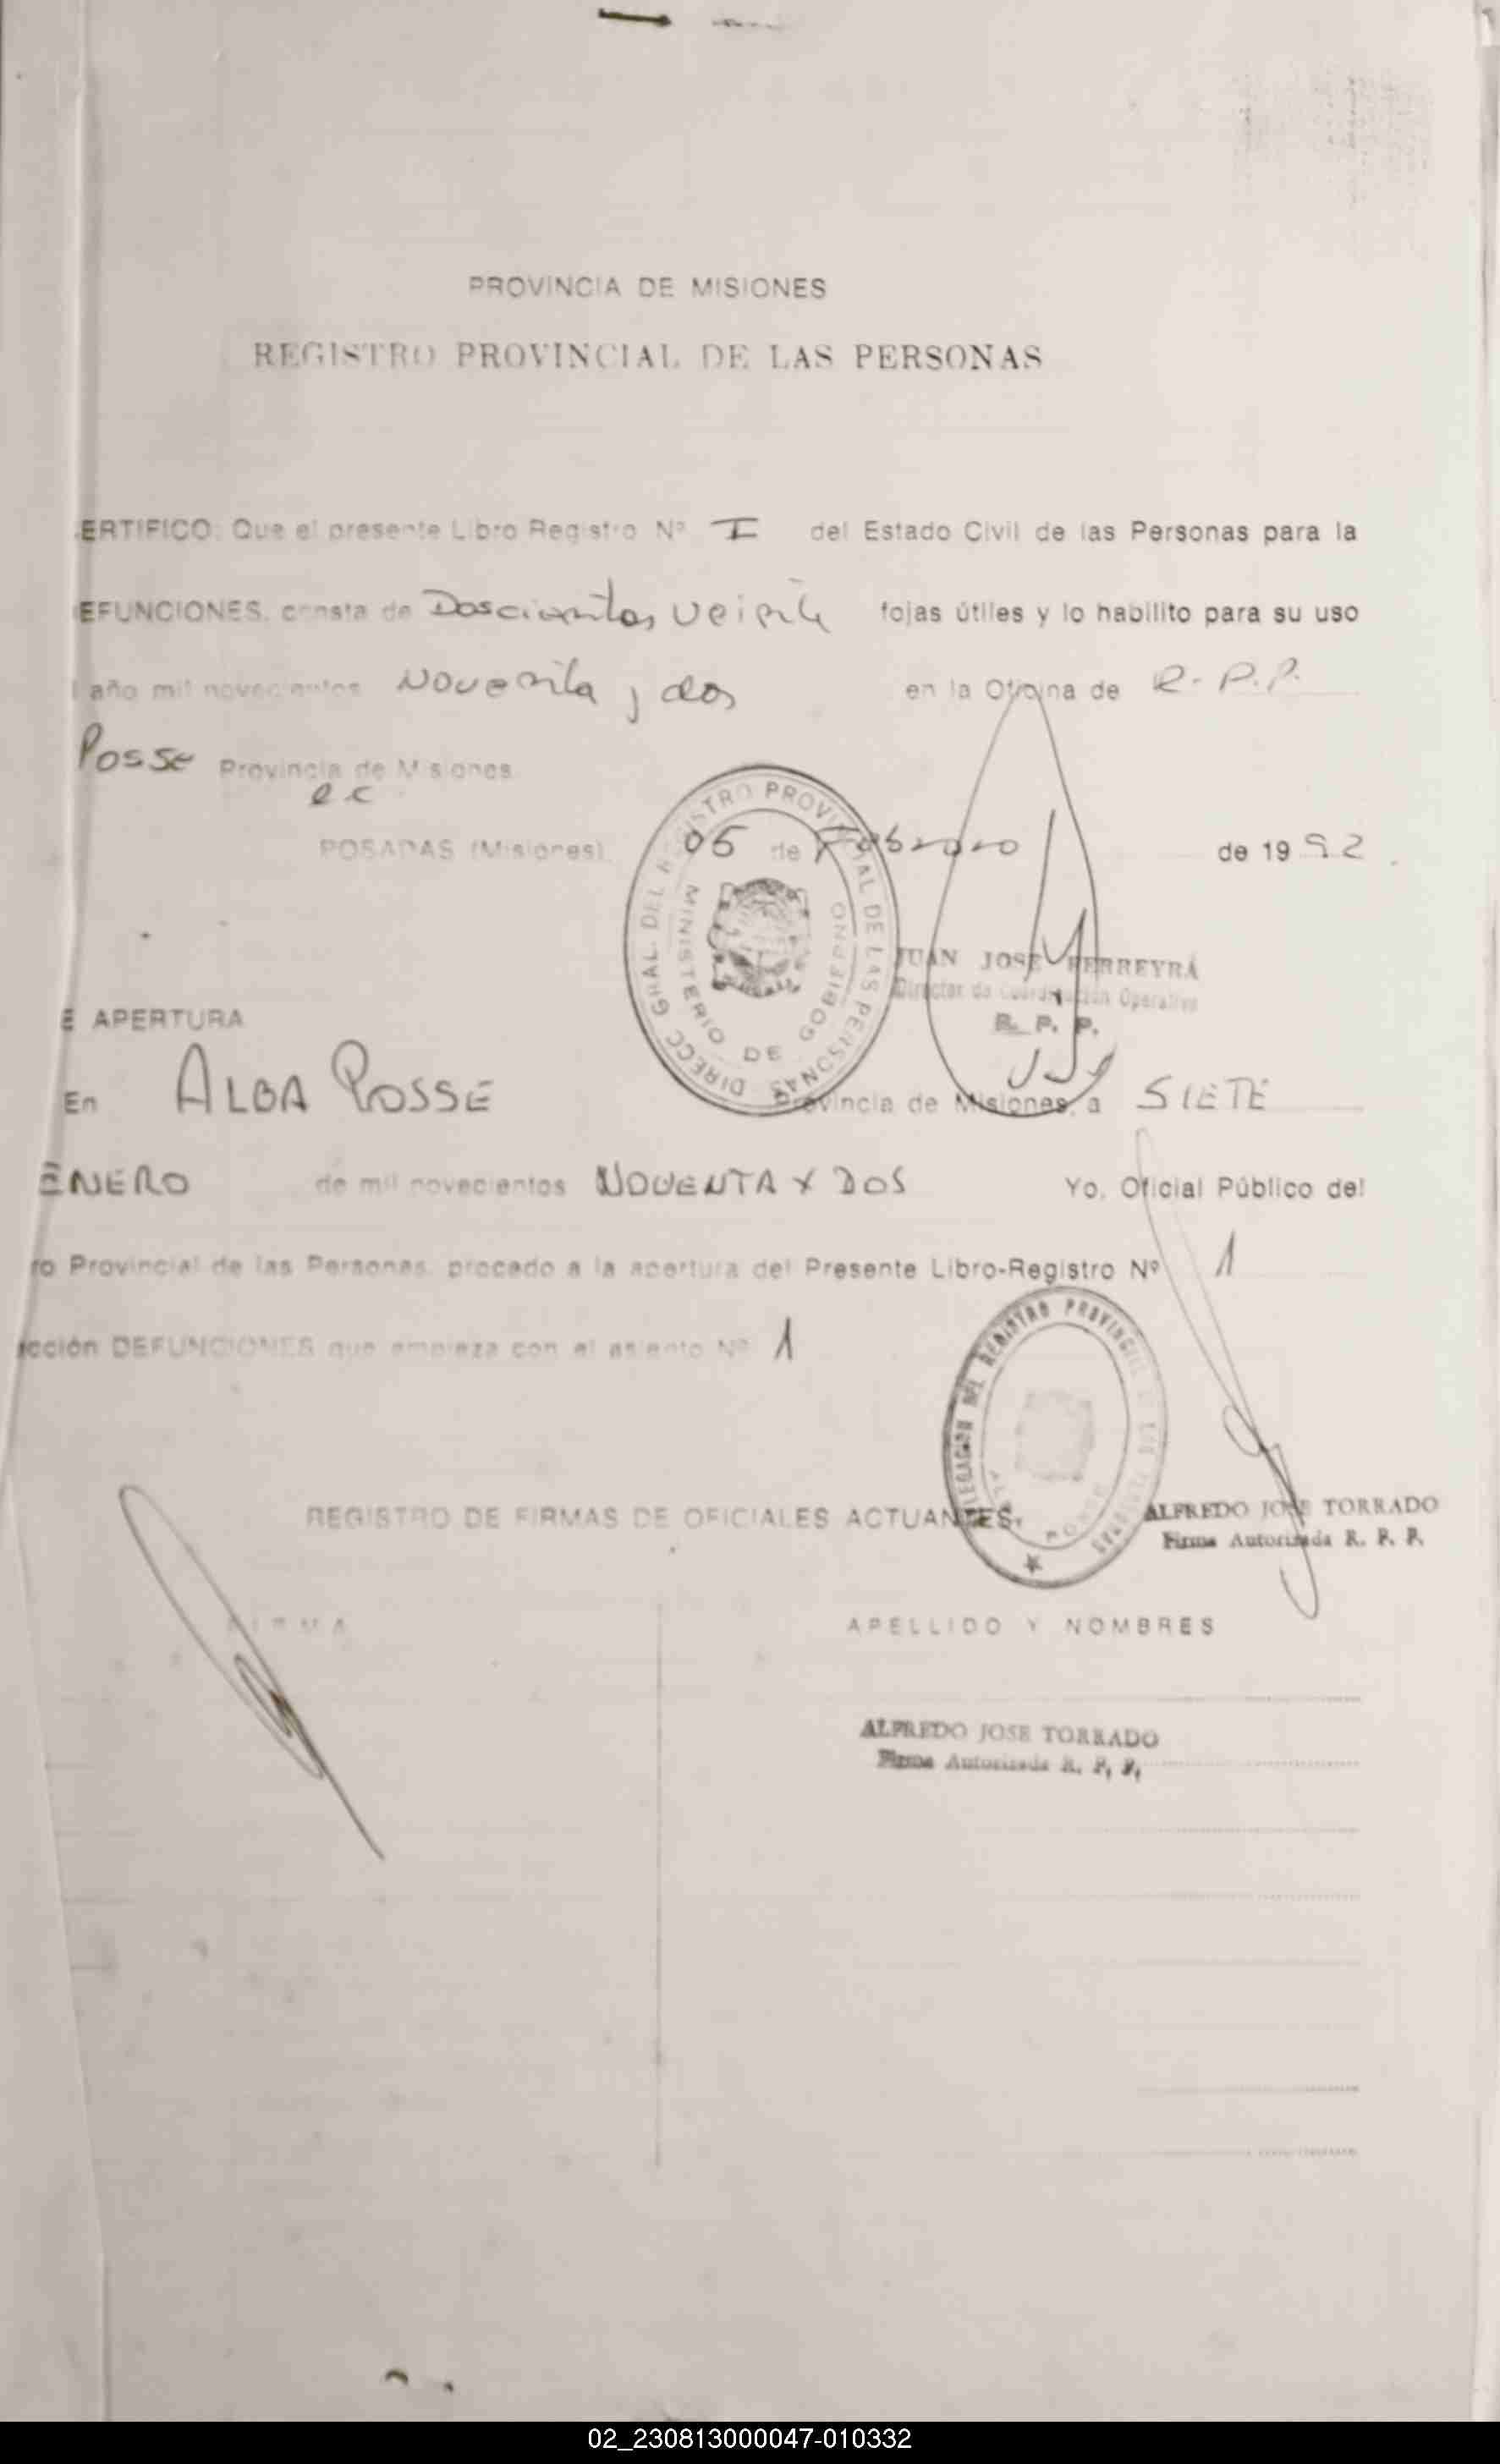 PROVINCIA DE MISIONES
REGISTRO PROVINCIAL DE LAS PERSONAS
ERTIFICO: Que el presente Libro Registro Nº I del Estado Civil de las Personas para la
EFUNCIONES, consta de Doscientos veinte fojas útiles y lo habilito para su uso
l año mil novecientos Noventa y dos en la Oficina de R.P.P.
Posse Provincia de Misiones.
POSADAS (Misiones), 05 de Febrero de 1992.
DIRECC. GRAL. DEL REGISTRO PROVINCIAL DE LAS PERSONAS
MINISTERIO DE GOBIERNO
JUAN JOSE FERREYRA
Director de Coordinación Operativo
R. P. P.
E APERTURA
En ALBA POSSE Provincia de Misiones, a SIETE
ENERO de mil novecientos NOVENTA Y DOS Yo, Oficial Público del
ro Provincial de las Personas, procedo a la apertura del Presente Libro-Registro Nº 1
ección DEFUNCIONES que empieza con el asiento Nº 1
DELEGACION DEL REGISTRO PROVINCIAL DE LAS PERSONAS
ALBA POSSE
ALFREDO JOSE TORRADO
Firma Autorizada R. P. P.
REGISTRO DE FIRMAS DE OFICIALES ACTUANTES.
FIRMA APELLIDO Y NOMBRES
ALFREDO JOSE TORRADO
Firma Autorizada R. P. P.
02_230813000047-010332